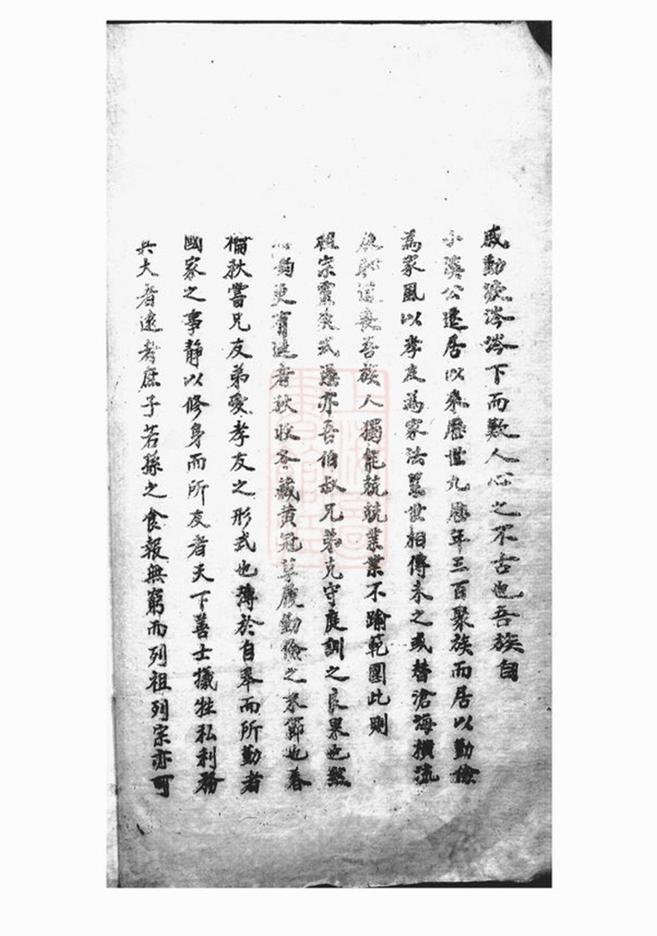 感動淚涔涔下而歎人心之不古也吾族自
小溪公遷居以來歷世九歷年三百聚族而居以勤儉
為家風以孝友為家法蓋世相傳未之或替滄海橫流
道喪吾族人獨能兢兢業業不踰範圍此則
祖宗靈爽式憑亦吾伯叔兄弟克守庭訓之良果也然
更有進者秋收冬藏黃冠草履勤儉之末節也春
禴秋嘗兄友弟愛孝友之形式也薄於自奉而所勤者
國家之事靜以修身而所友者天下善士犧牲私利務
其大者遠者庶子若孫之食報無窮而列祖列宗亦可